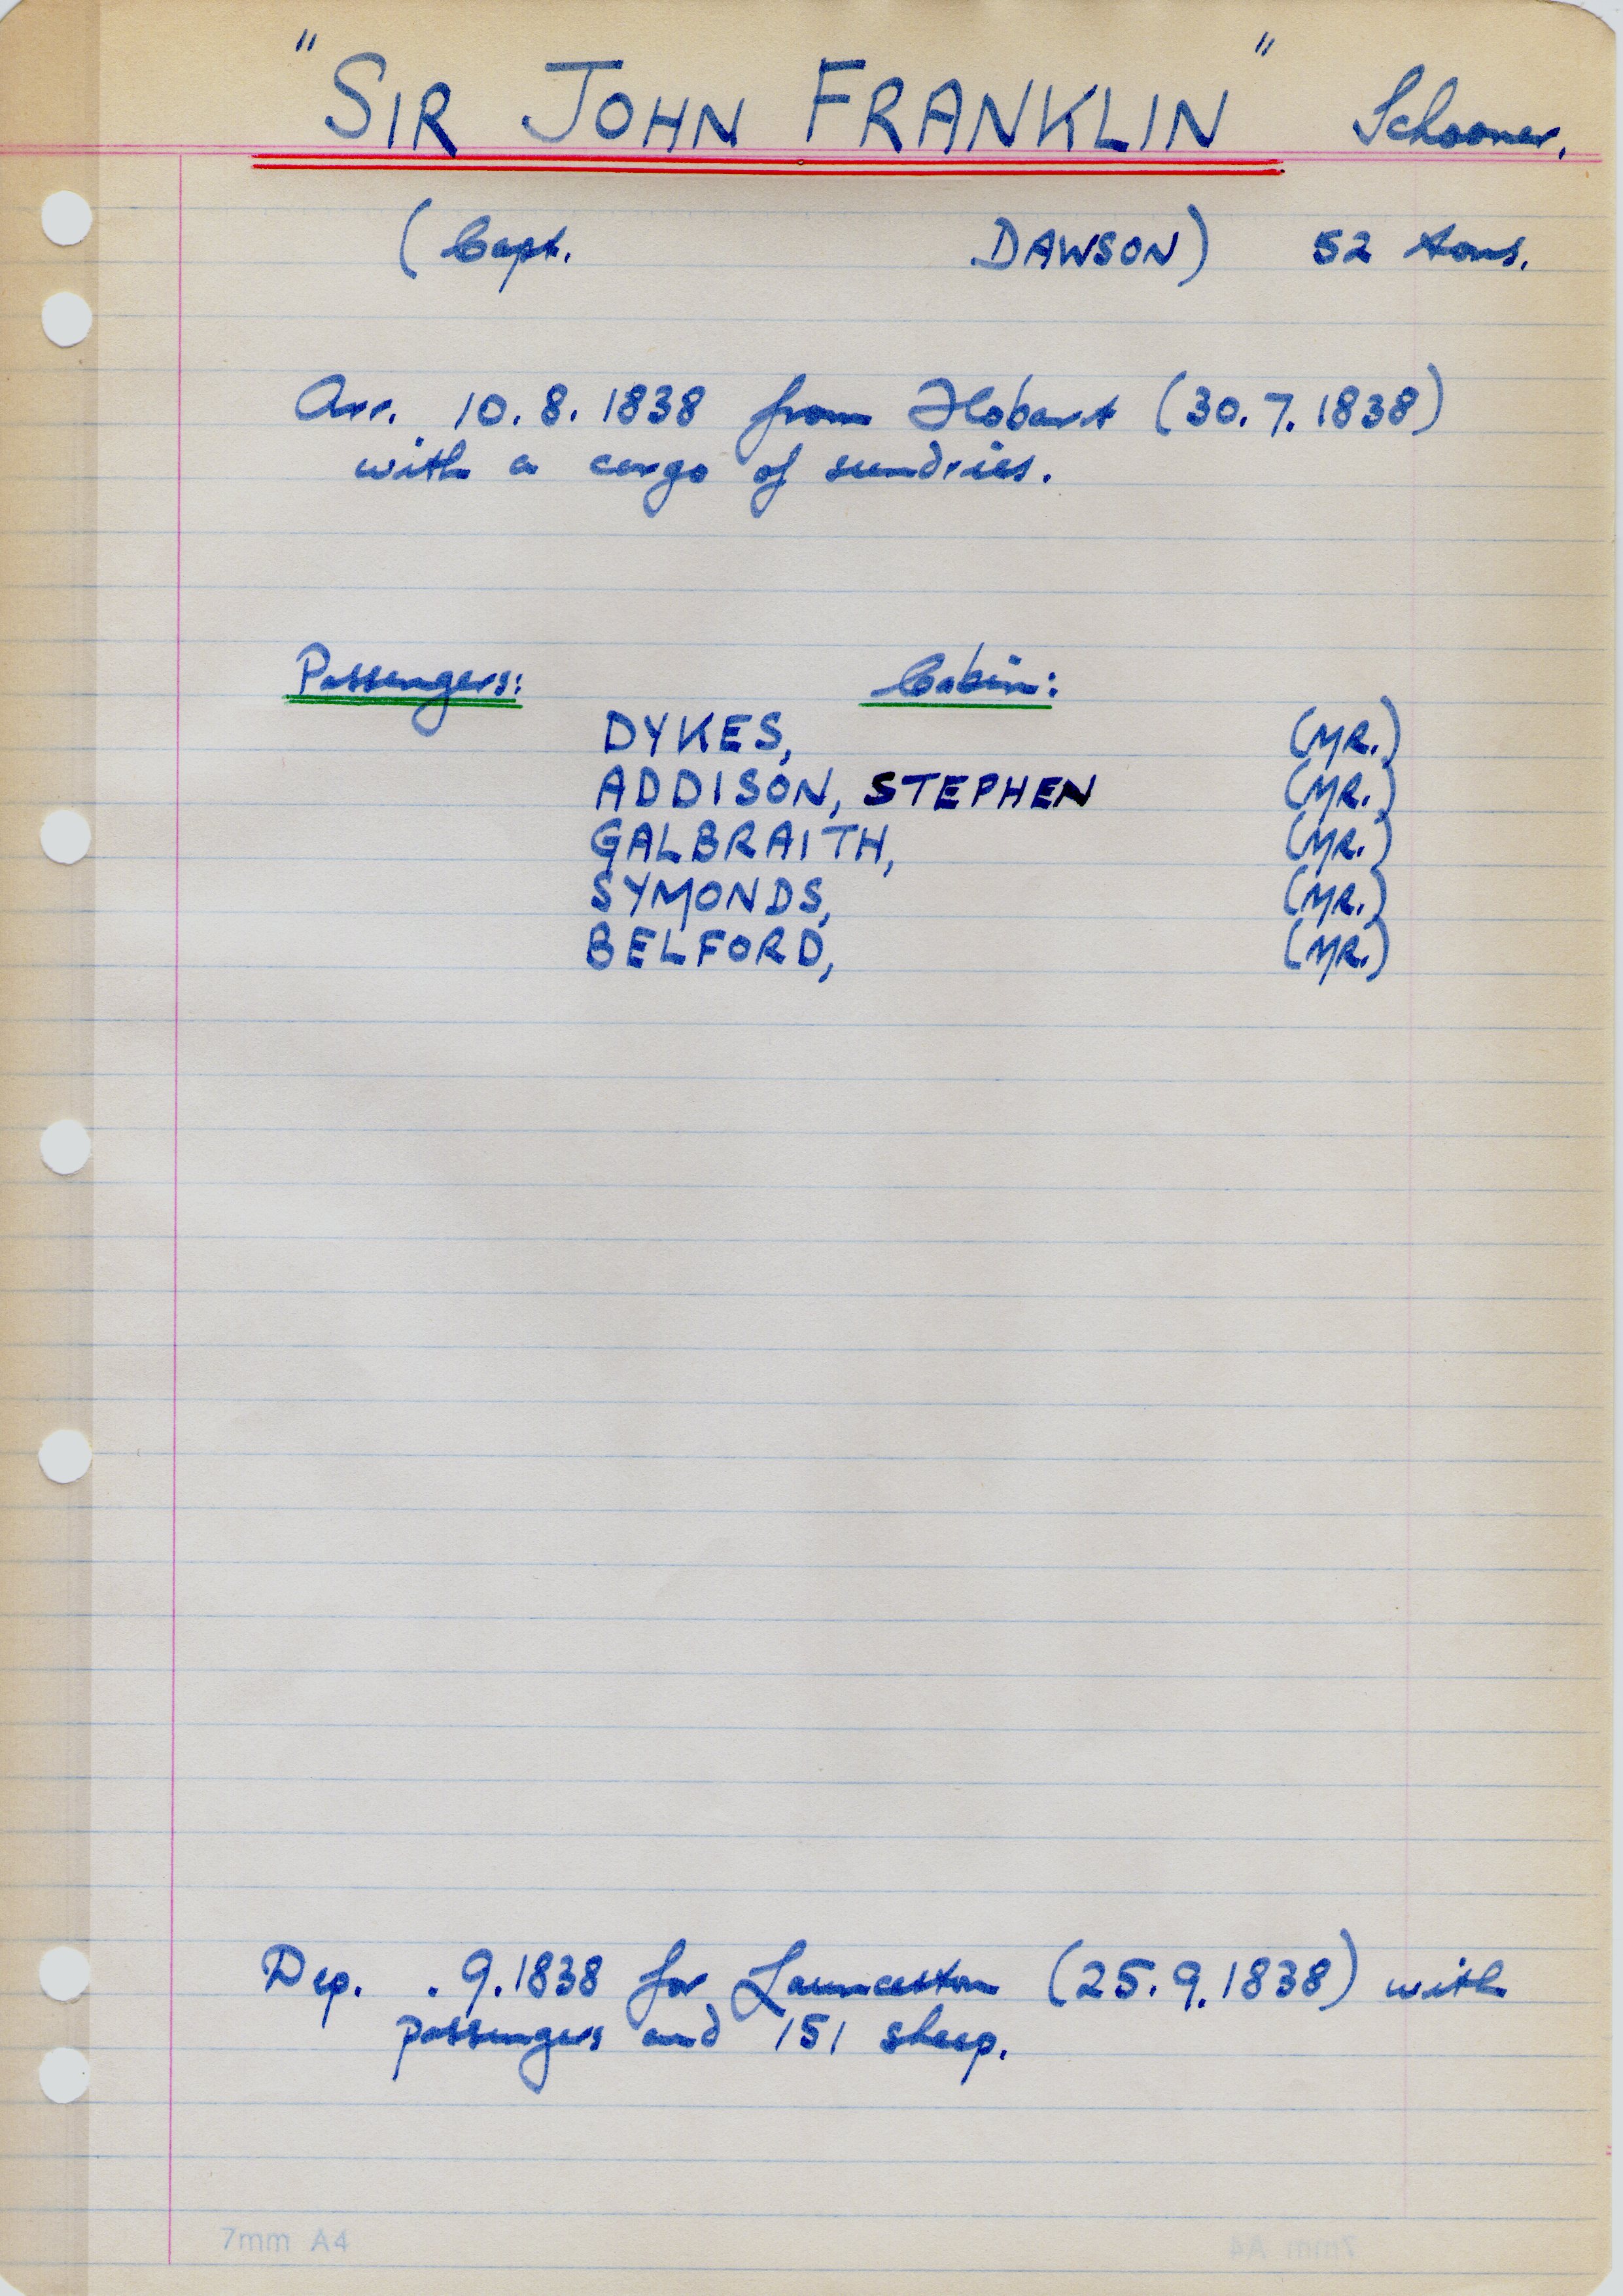 "SIR JOHN FRANKLIN" Schooner.
(Capt. DAWSON) 52 tons.
Arr. 10.8.1838 from Hobart (30.7.1838)
with a cargo of sundries.
Passengers: Cabin:
DYKES, (MR.)
ADDISON, STEPHEN (MR.)
GALBRAITH, (MR.)
SYMONDS, (MR.)
BELFORD, (MR.)
Dep. .9.1838 for Launceston (25.9.1838) with
passengers and 151 sheep.
7mm A4